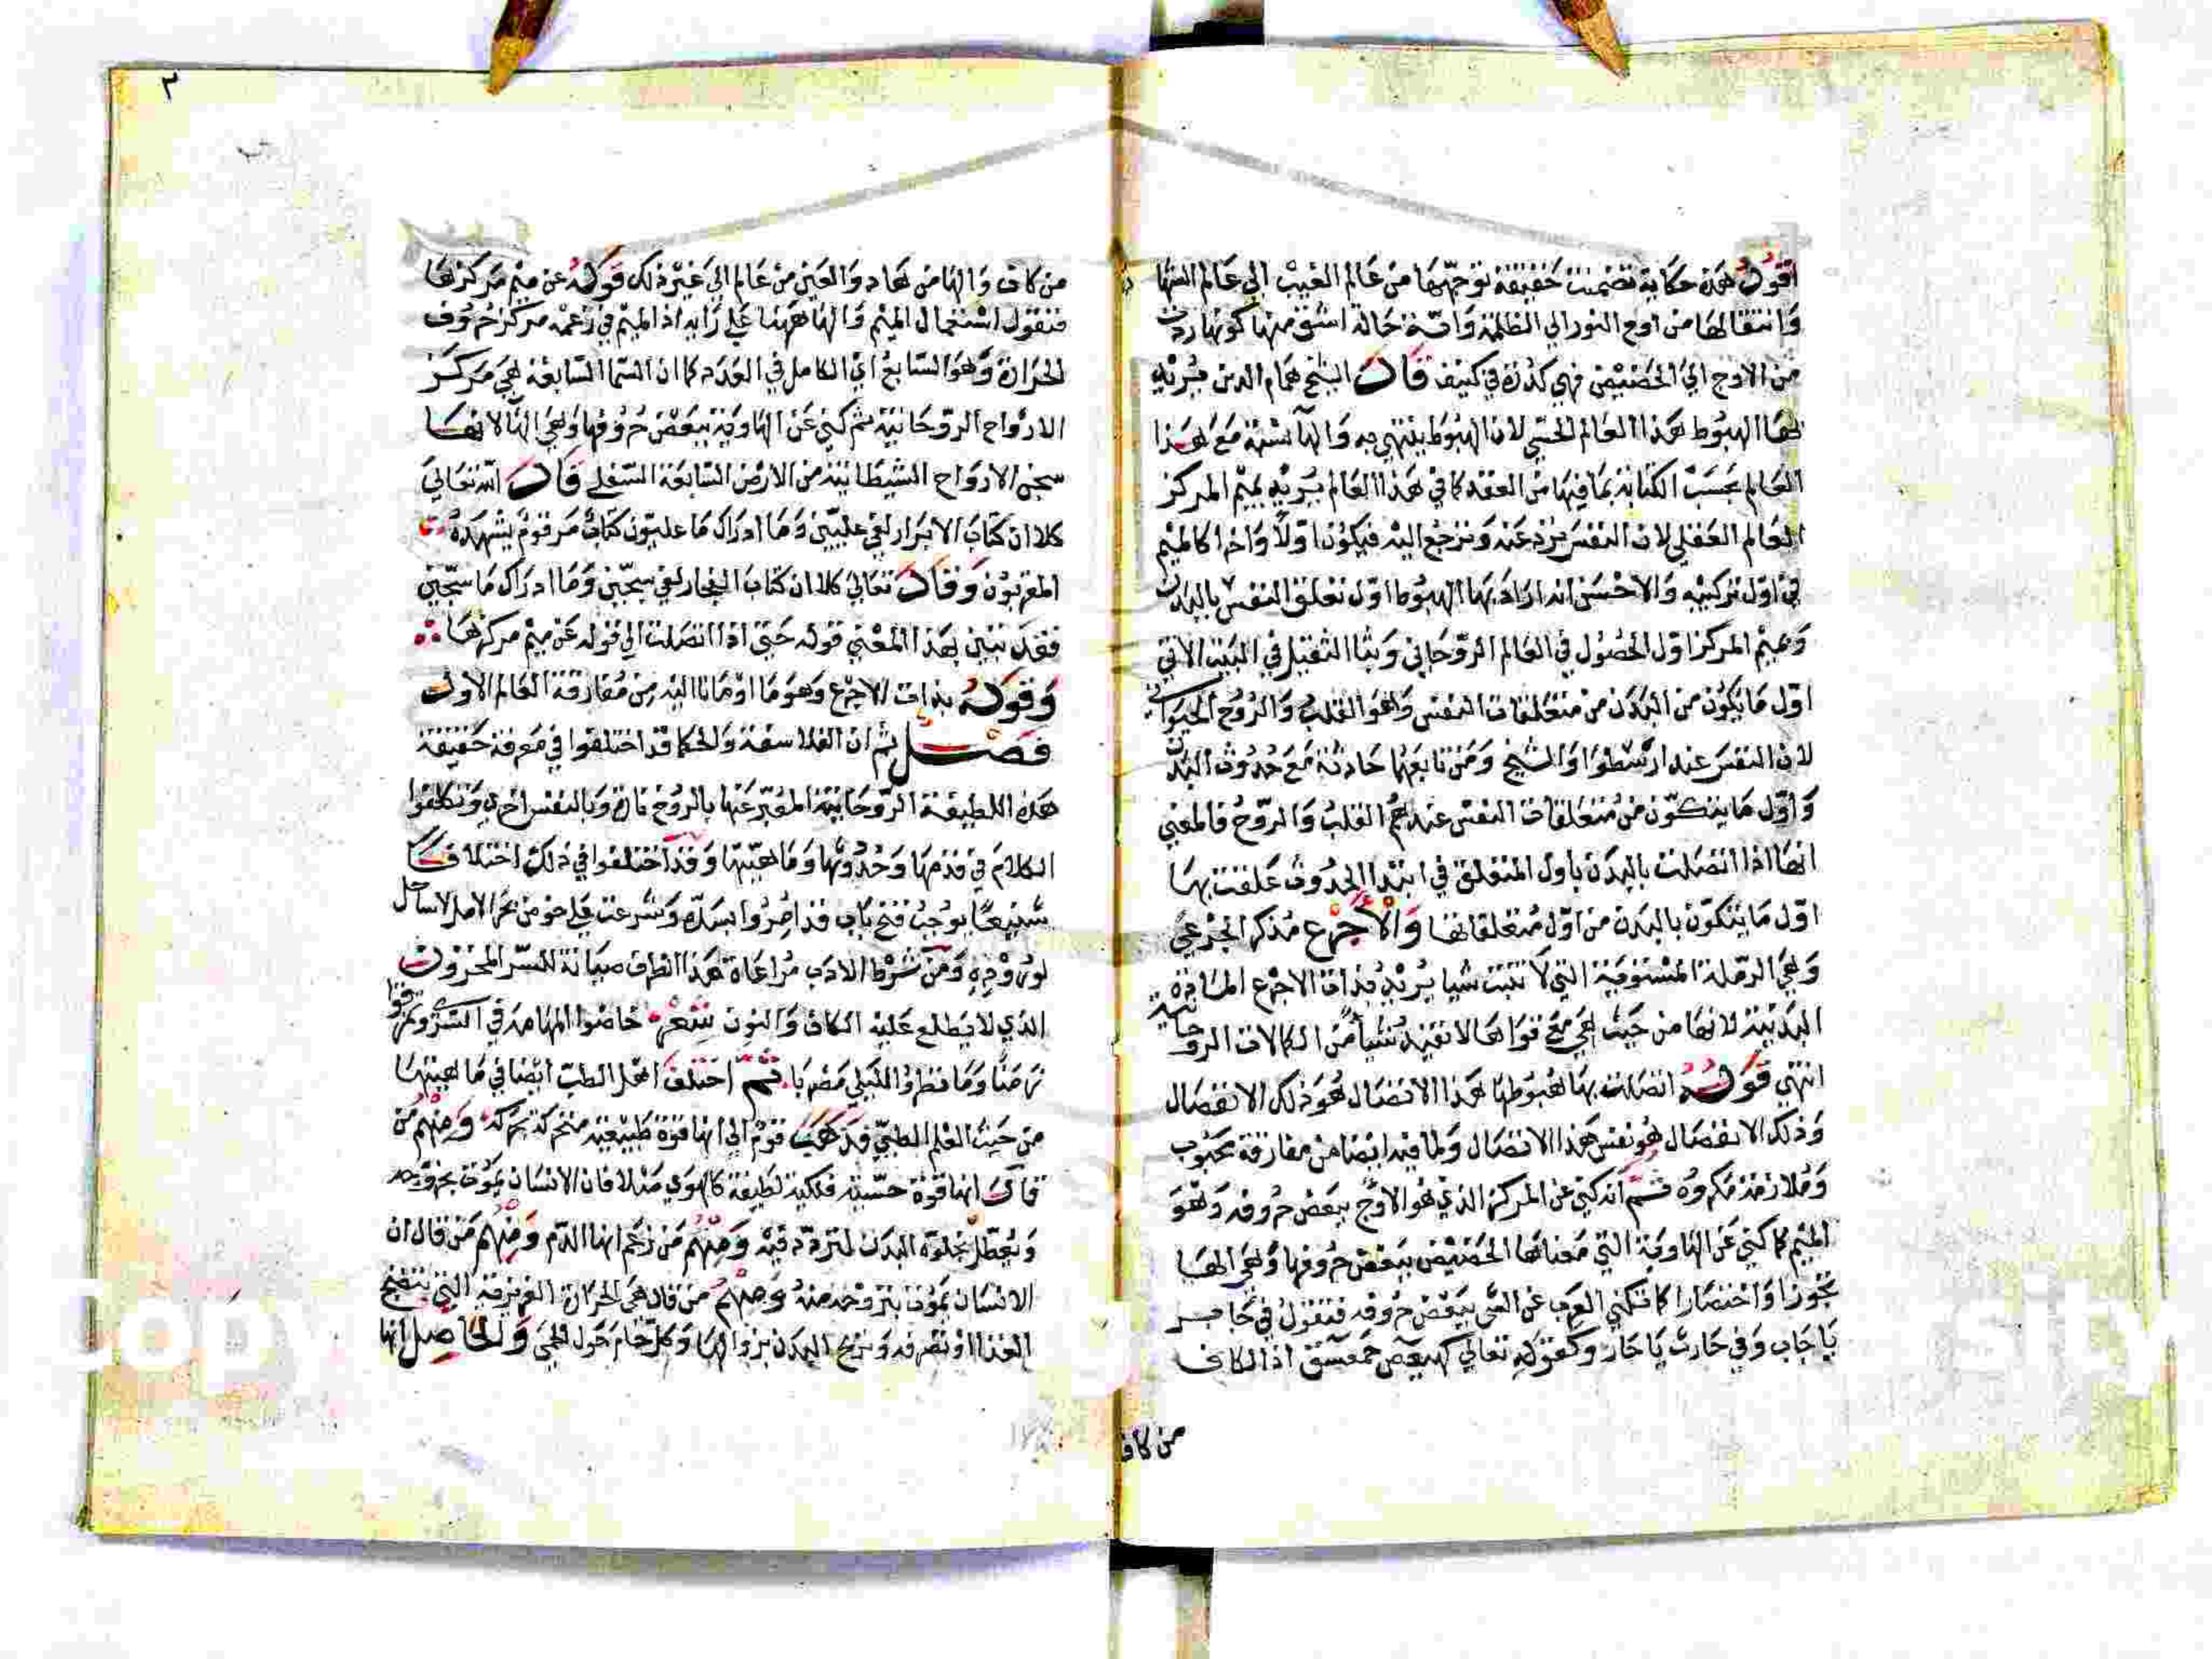 اقول هذه حكاية تضمنت حقيقة توجهها من عالم الغيب الي عالم الشها
وانتقالها من اوج النور الي الظلمة واية حالة اشق منها كونها ردت
من الاوج الي الحضيض فهي كدرة في كنيف قال الشيخ همام الدين يريد
بها الهبوط هذا العالم الحسي لان الهبوط ينتهي به والها نسبة مع هذا
العالم بحسب الكتابة بما فيها من العقد كما في هذا العالم يريد بميم المركز
العالم العقلي لان النفس ترد عنه وترجع اليه فيكون اولا واخرا كالميم
في اول تركيبه والاحسن انه اراد بها الهبوط اول تعلق النفس بالبدن
وميم المركز اول الحصول في العالم الروحاني وبثا الثقيل في البيت الاتي
اول ما يكون من البدن من متعلقات النفس وهو القلب والروح الحيواني
لان النفس عند ارسطوا والشيخ ومن تابعهما حادثة مع حدوث البدن
واول ما يتكون من متعلقات النفس عندهم القلب والروح فالمعني
انها اذا اتصلت بالبدن باول المتعلق في ابتدا الحدوث علقت بها
اول ما يتكون بالبدن من اول متعلقاتها والاجرع مذكر الجرعي
وهي الرملة المستوية التي لا تنبت شيا يريد بذات الاجرع المادة
البدنية لانها من حيث هي مع قواها لا تفيد شيا من الكمالات الروحانية
انتهي قوله اتصلت بها هبوطها هذا الاتصال هو ذلك الانفصال
وذلك الانفصال هو نفس هذا الاتصال ولما فيه ايضا من مفارقة محبوب
وملازمة مكروه ثم انه كني عن المركز الذي هو الاوج ببعض حروفه وهو
الميم كما كني عن الهاوية التي معناها الحضيض ببعض حروفها وهي الها
تجوزا واختصارا كما تكني العرب عن الشي ببعض حروفه فتقول في جابر
يا جاب وفي حارث يا حار وكقوله تعالي كهيعص حمعسق اذ الكاف
من كاف
٣
من كاف والها من هاد والعين من عالم الي غير ذلك قوله عن ميم مركزها
فنقول استعمال الميم والها ههنا علي رايه اذ الميم في زعمه مركز حروف
الحرارة وهو السابع اي الكامل في العدد كما ان السما السابعة هي مركز
الارواح الروحانية ثم كني عن الهاوية ببعض حروفها وهي الها لانها
سجن الارواح الشيطانية من الارض السابعة السفلي قال الله تعالي
كلا ان كتاب الابرار لفي عليين وما ادراك ما عليون كتاب مرقوم يشهده
المقربون وقال تعالي كلا ان كتاب الفجار لفي سجين وما ادراك ما سجين
فقد تبين بهذا المعني قوله حتي اذا اتصلت الي قوله عن ميم مركزها
وقوله بذات الاجرع وهو ما اومانا اليه من مفارقة العالم الاول
فصل ثم ان الفلاسفة والحكما قد اختلفوا في معرفة حقيقة
هذه اللطيفة الروحانية المعبر عنها بالروح تارة وبالنفس اخري وتكلفوا
الكلام في قدمها وحدوثها وماهيتها وقد اختلفوا في ذلك اختلافا
شنيعا يوجب فتح باب قد امروا بسده وشرعت في حوض من بحر الامل لا ساحل
لوروده ومن شرط الادب مراعاة هذا الطرف صيانة للسر المخزون
الذي لا يطلع عليه الكاف والنون شعر خاضوا المهامه في السري وتفرقوا
ثم اختلف اهل الطب ايضا في ماهيتها
من حيث العلم الطبي فذهب قوم الي انها قوة طبيعية متحركة بحركة ومنهم من
قال انها قوة حسية فلكية لطيفة كالهوي مثلا فان الانسان يموت بخروجه
ويعطل بخلوه البدن لتردده فيه ومنهم من زعم انها الدم ومنهم من قال ان
الانسان يموت بنزوحه منه ومنهم من قال هي الحرارة الغريزية التي تنضج
الغذا او تصرفه وتريح البدن بزوالها وكل حام حول الحمي والحاصل انها